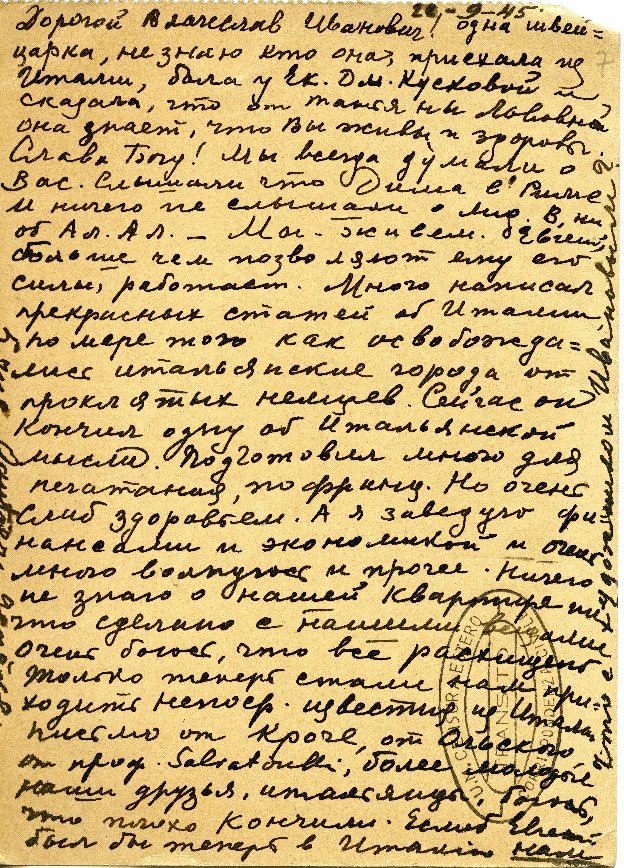 22-9-45
Дорогой Вячеслав Иванович! одна швей=
царка, не знаю кто она, приехала из
Италии, была у Ек. Дм. Кусковой и
сказала, что от Татьяны Львовны
она знает, что Вы живы и здоровы.
Слава Богу! Мы всегда думали о
Вас. Слышали что Дима в Риме
и ничего не слышали о Лид. В. ни
об Ал. Ал. — Мы живем. Евгений
больше чем позволяют ему его
силы, работает. Много написал
прекрасных статей об Италии
по мере того как освобожда=
лись итальянские города от
проклятых немцев. Сейчас он
кончил одну об Итальянской
мысли. Подготовил много для
печатания, по франц. Но очень
слаб здоровьем. А я заведую фи=
нансами и экономикой и очень
много волнуюсь и прочее. Ничего
не знаю о нашей квартире ни
что сделано с нашими вещами
очень боюсь, что всё расхищено
только теперь стали нам при=
ходить непоср. известия из Италии
письмо от Кроче, от
от проф. более молодые
наши друзья, итальянцы, боюсь,
что плохо кончили. Если б Евгений
был бы теперь в Италии нам
Что с художником Ивановым?
7